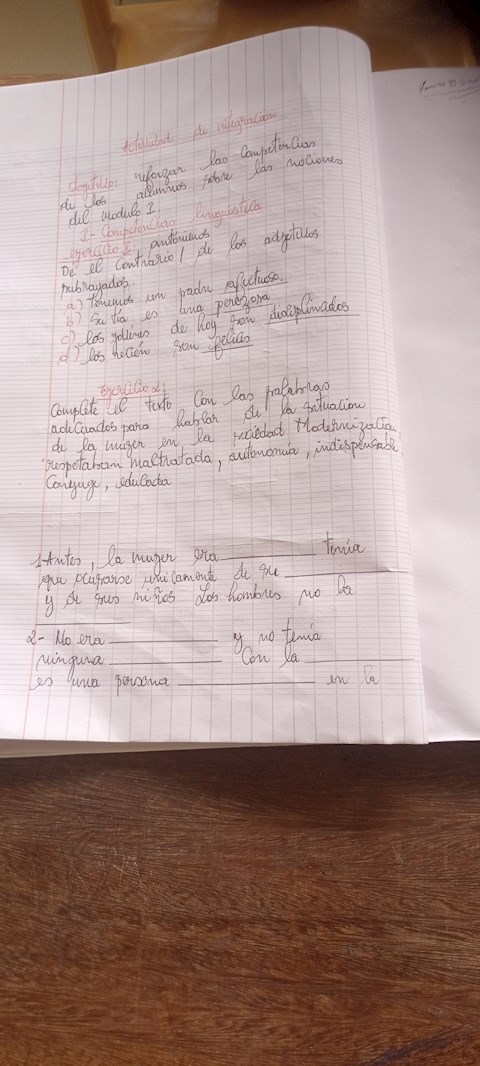 Actividad de integración
Objetivo: reforzar las competencias
de los alumnos sobre las nociones
del modulo I
I- Competencias linguistica
ejercicio 1
Dé el contrario / antónimos de los adjetivos
subrayados.
a) Tenemos un padre afectuoso
b) Su tía es una perezosa
c) los jóvenes de hoy son disciplinados
d) los recién son felices
Ejercicio 2
Complete el texto con las palabras
adecuados para hablar de la situacion
de la mujer en la sociedad Modernización
respetaban maltratada, autonomia, indispensable
Conyuge, educada
1-Antes, la mujer era __________ tenia
que ocuparse unicamente de su __________
y de sus niños Los hombres no la
__________
2- No era __________ y no tenia
ninguna __________ Con la __________
es una persona __________ en la